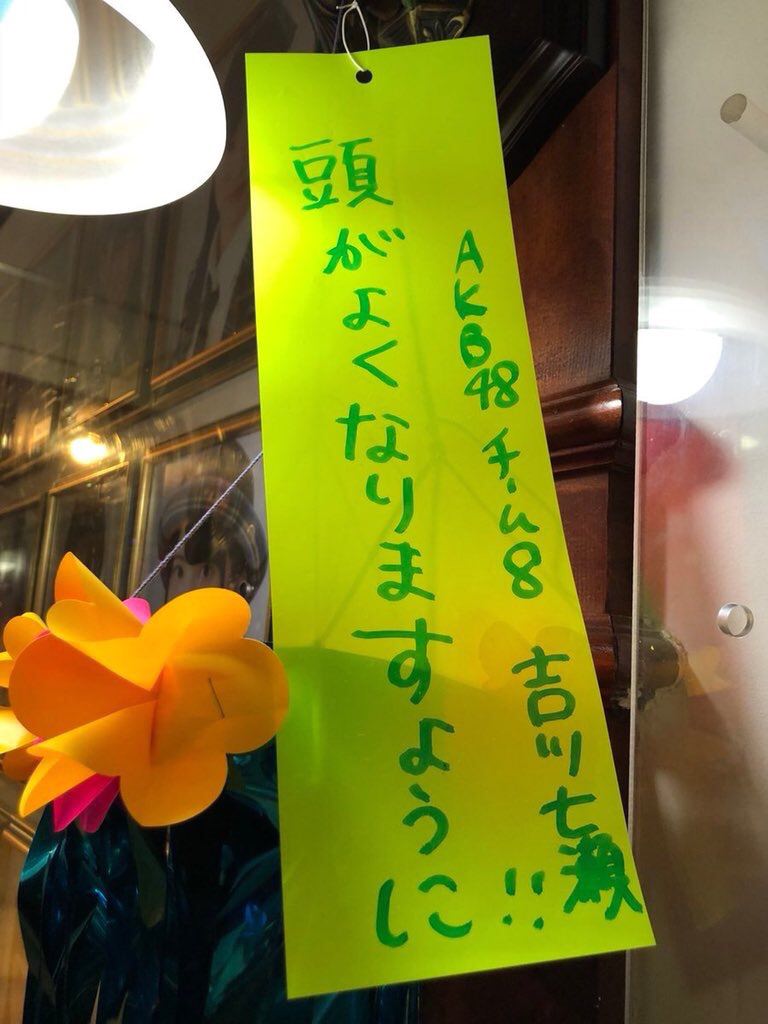 AKB48 チーム8 吉川七瀬
頭がよくなりますように!!